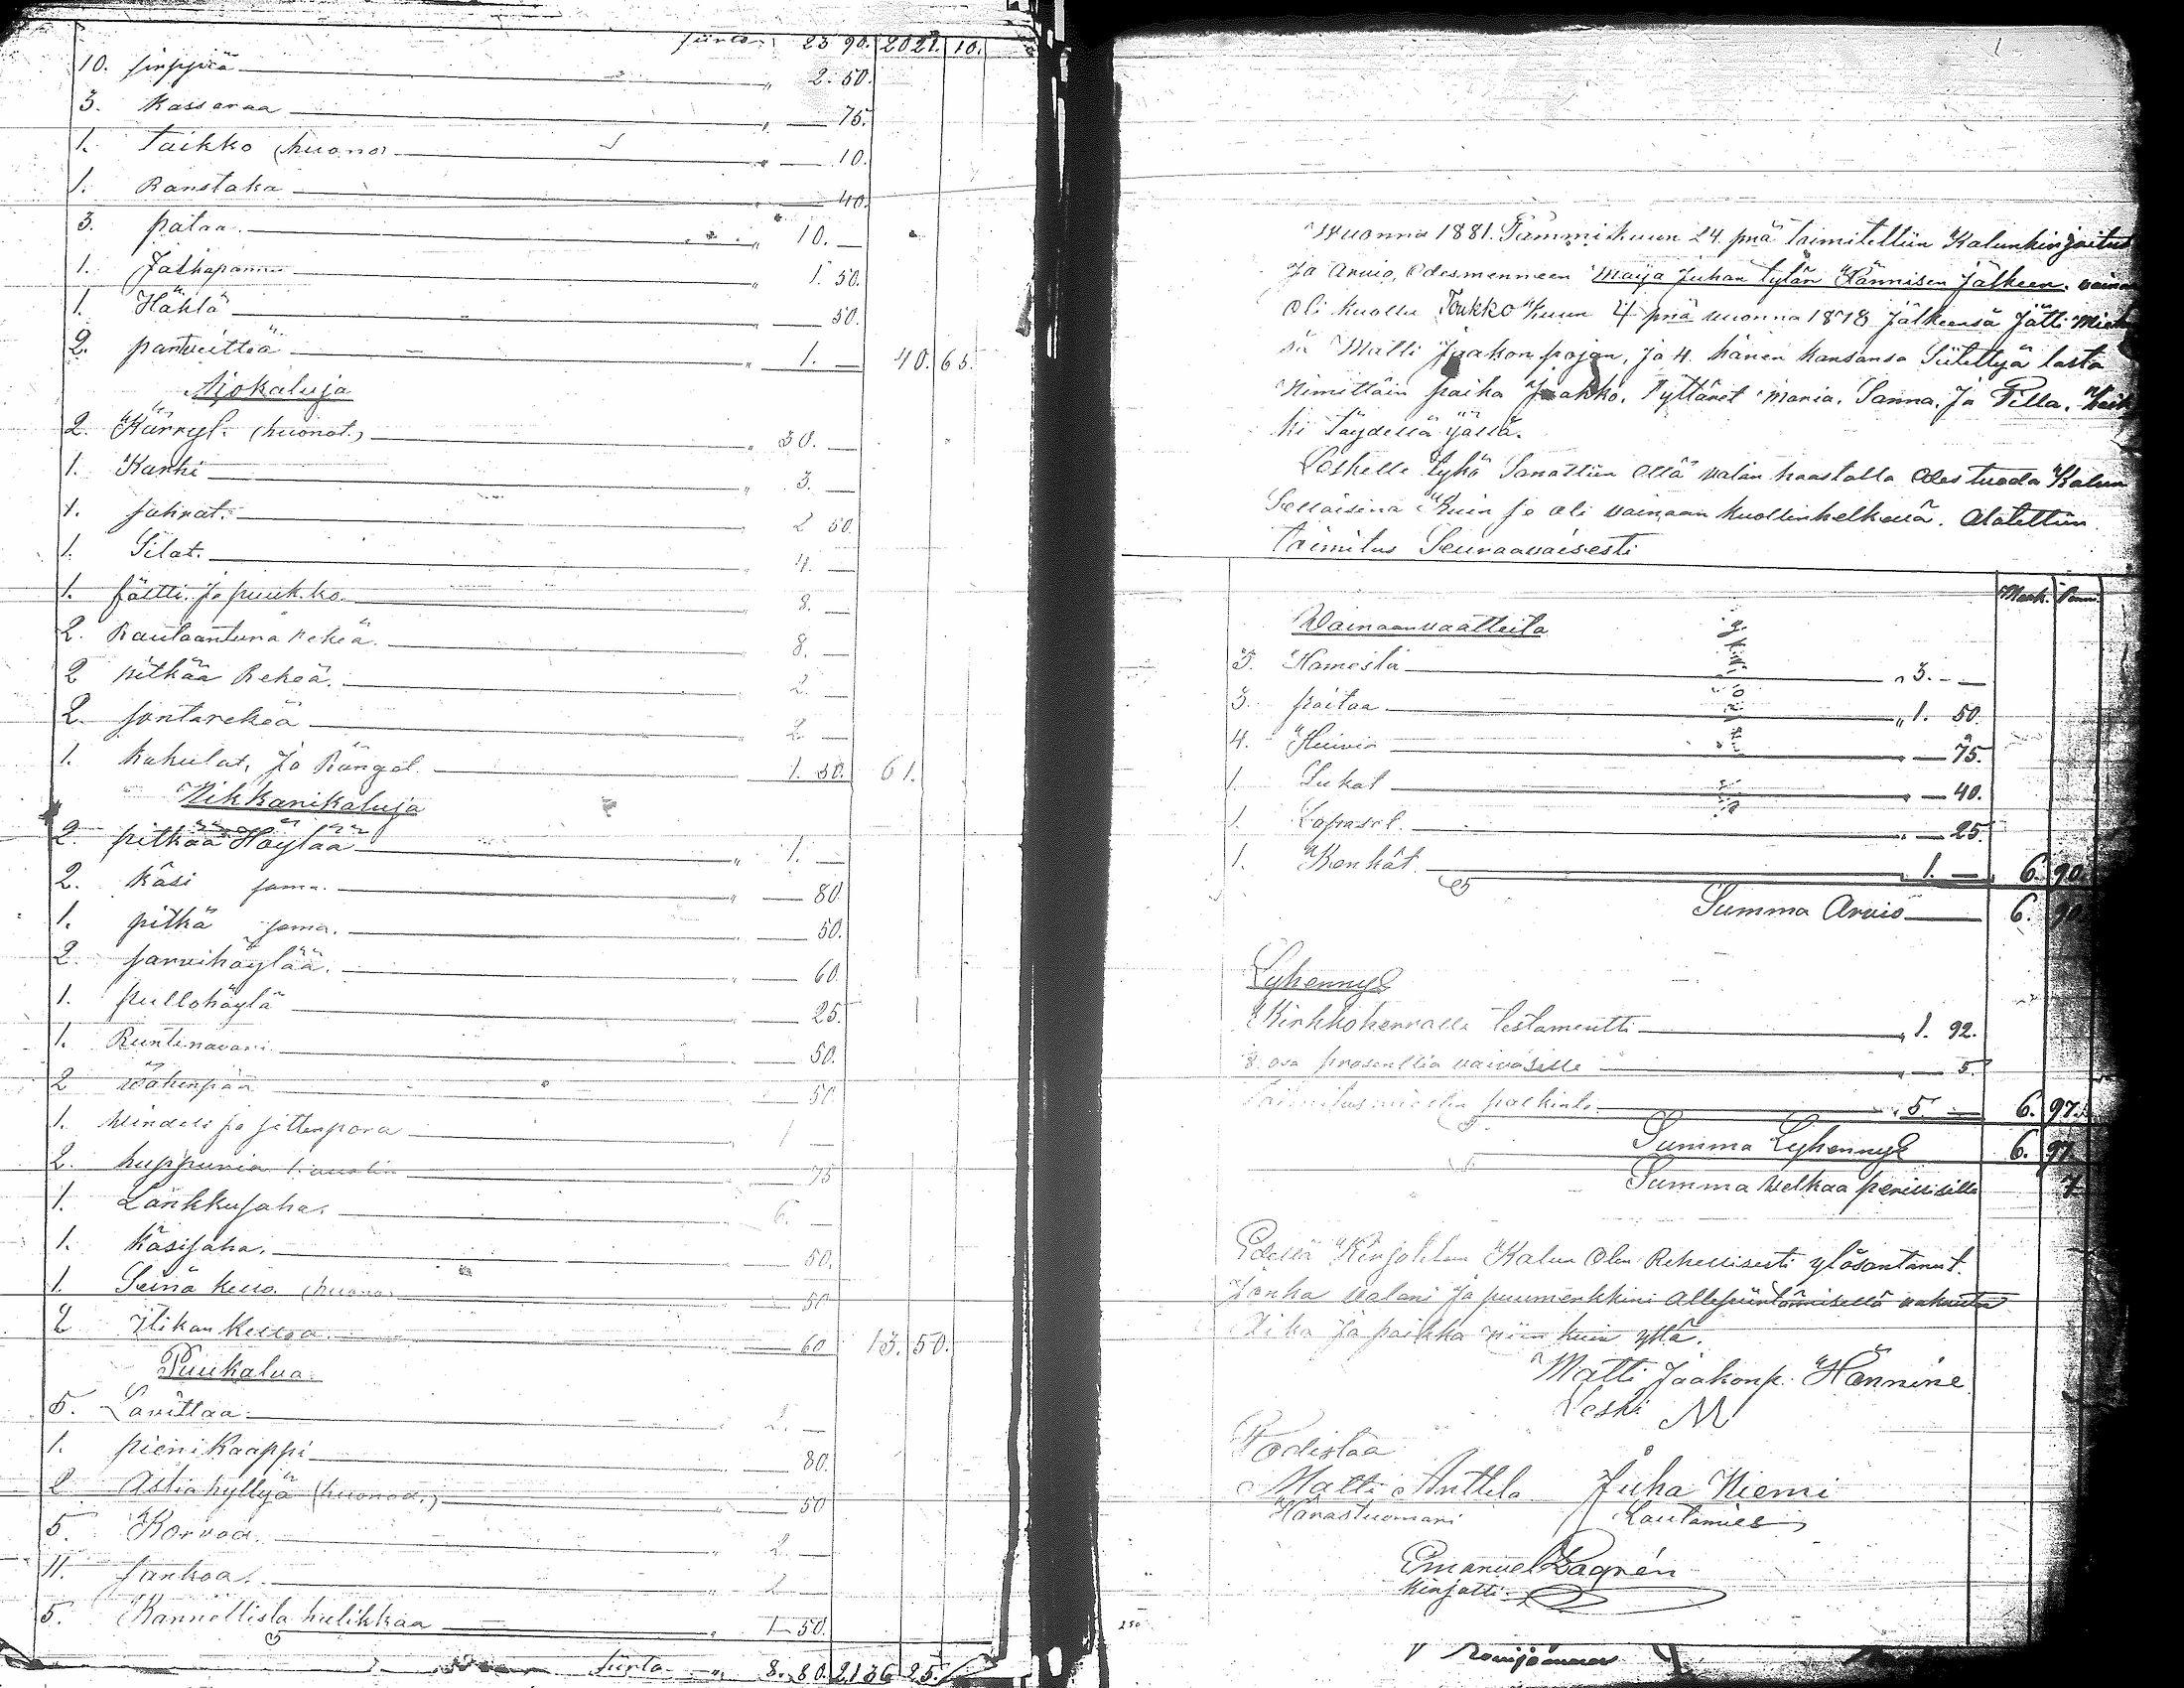 Siirto 23 90. 2021. 10.
10. sirppiä " 2. 50.
3. Kassaraa " — 75.
1. Taikko (huono) " — 10.
1. Ranstaka " — 40.
3. pataa. " 10. —
1. Jalkapannu " 1. 50.
1. Hähla " — 50.
2. " 1. — 40. 65.
Ajokaluja
2. Kärryt. (huonot.) " 30. —
1. Kanki " 3. —
1. sahrat. " 2 50.
1. Silat. " 4. —
1. ja puukko. " 8. —
2. Rautaantura Rekeä. " 8. —
2 pitkää Rekeä. " 2. —
2. sontarekeä " 2. —
1. Rahulat, ja Ränget. 1. 50. 61.
Nikkarikaluja
2. pitkää Höylää " 1. —
2. käsi sama. " — 80.
1. pitkä sama. " — 50.
2. sarvihöylää. " — 60.
1. pullohöylä " — 25.
1. Runtinavari. " — 50.
2 " — 50.
1. ja " 1 —
2. " — 75
1. Lankkusaha. " 6. —
1. Käsisaha. " — 50.
1. Seinä kello (huono) " — 50
2 " — 60 13. 50.
Puukalua.
5. Lavittaa " 2. —
1. pieni Kaappi " — 80.
2 Astia hyllyä (huonoa.) " — 50
5. Korvoa. " 2. —
11. Sankoa. " 2 —
5. Kannellista hulikkaa " 1 50.
Siirto " 8. 80. 2136 25.
Wuonna 1881. Tammikuun 24. pnä toimitettiin Kalunkirjoitus
ja Arvio, Edesmenneen Maija Juhan tytän Hännisen Jälkeen.
Oli kuollu Toukko Kuun 4 pnä vuonna 1878 Jälkeensä Jätti
Matti Jaakon pojan, ja 4. hänen kansansa Siitettyä lasta
Nimittäin poika Jaakko. Tyttäret Maria. Sanna. Ja
ki Täydellä ijällä.
Leskelle Sanottiin Ollä valan haastolla Edes tuoda Kalun
Sellaisena Kuin se oli vainaan kuollinhelkellä. Alotettiin
Toimitus Seuraavaisesti
Mark. Penni.
Wainaan vaatteita
3. Hamesta " 3. —
3. paitaa " 1. 50.
4. Huivia " — 75.
1. Sukat " — 40.
1. Lapaset. " — 25.
1. Kenkät. " 1. — 6. 90.
Summa Arvio 6. 90.
Lyhennys
Kirkkoherralle testamentti " 1. 92.
8 osa prosenttia vaivasille " — 5.
Toimitusmiesten palkinto " 5. — 6. 97.
Summa Lyhennys 6. 97.
Summa Velkaa perillisille 7
Edellä Kirjoitetun Kalun Olen Rehellisesti ylösantanut.
Jonka Valani ja puumerkkini Allepiirtämisellä vakuutan
Aika ja paikka niin kuin yllä.
Matti Jaakonp. Hännine
Leski M
Todistaa
Matti Anttila Juha Niemi
Lautamies
Emanuel Pagrén
kirjotti
250